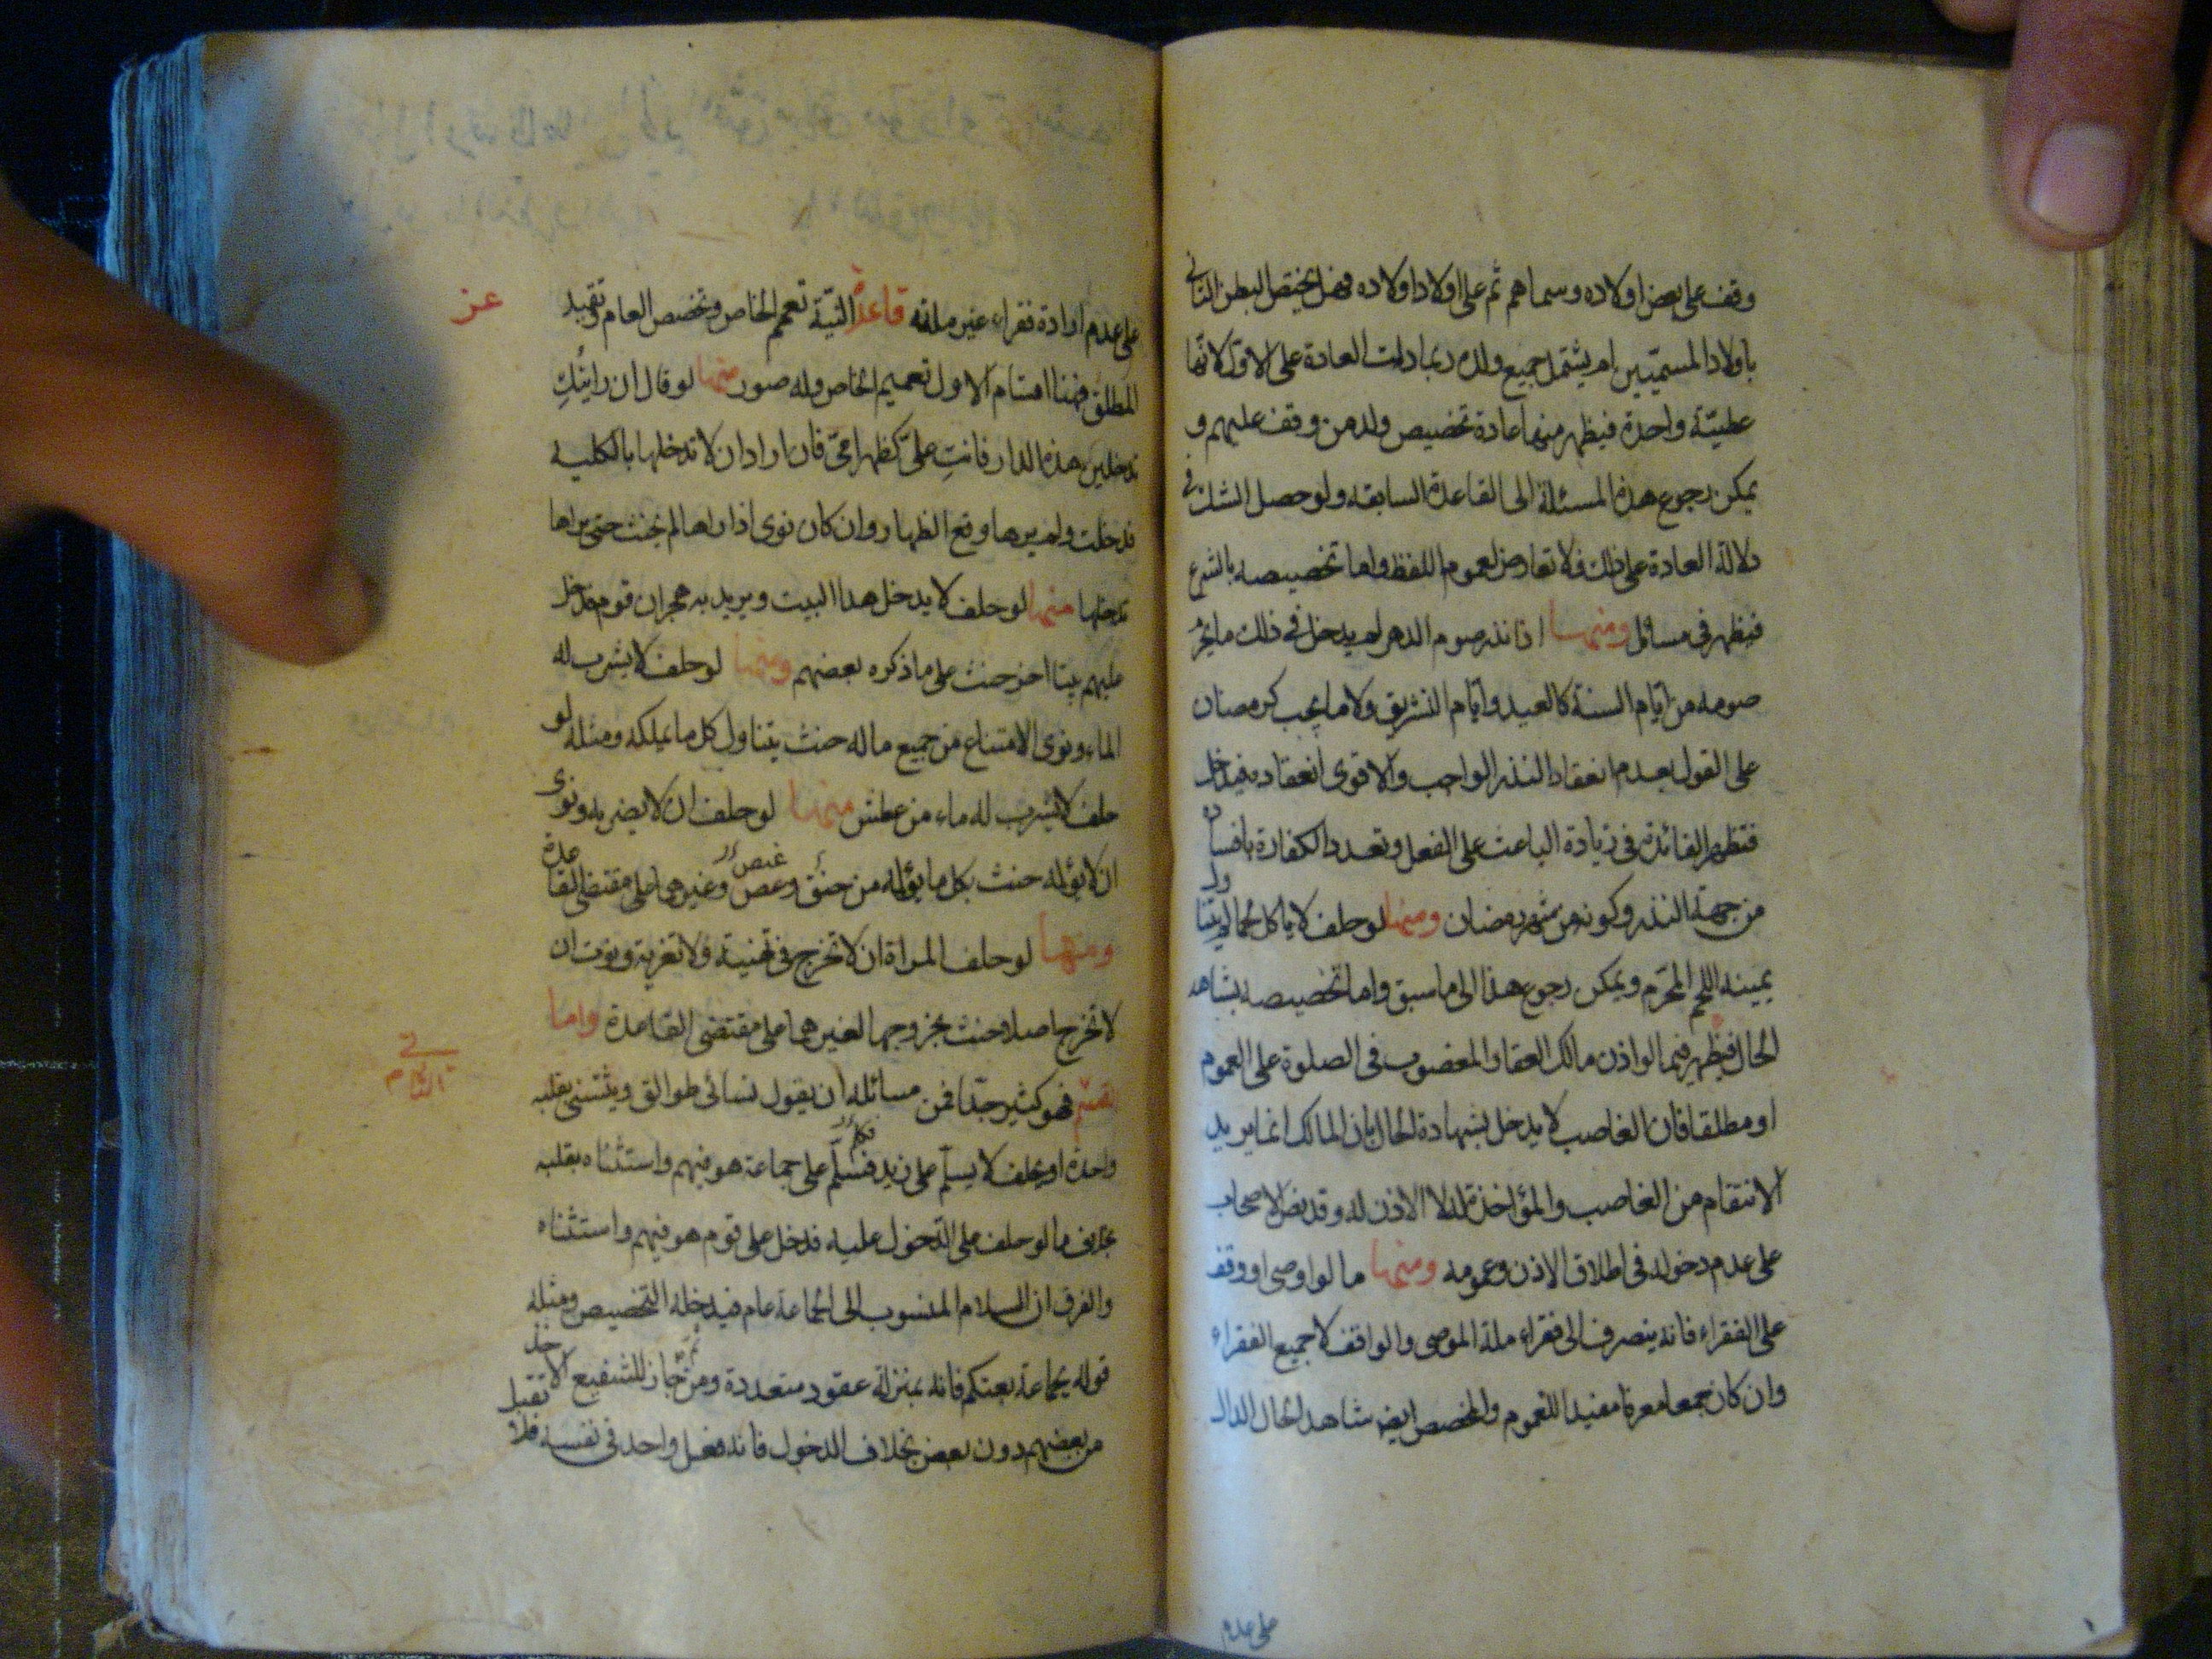 وقف على بعض اولاده وسماهم ثم على اولاد اولاده فهل يختص البطن الثاني
باولاد المسميين ام يشتمل جميع ولده ربما دلت العادة على الاول لانها
عطيّة واحدة فيظهر منها عادة تخصيص ولد من وقف عليهم و
يمكن رجوع هذه المسئلة الى القاعدة السابقه ولو حصل الشك في
دلالة العادة على ذلك فلا تعارض لعموم اللفظ واما تخصيصه بالشرع
فيظهر في مسائل ومنها اذا نذر صوم الدهر لم يدخل في ذلك ما يحرم
صومه من ايّام السنة كالعيد وايّام التشريق ولا ما يجب كرمضان
على القول بعدم انعقاد النذر الواجب والاقوى انعقاده فيدخل
فتظهر الفائدة في زيادة الباعث على الفعل وتعدد الكفارة بافساده
من جهة النذر وكونه من شهر رمضان ومنها لو حلف لا ياكل لحما لم يتناول
يمينه اللحم المحرّم ويمكن رجوع هذا الى ما سبق واما تخصيصه بشاهد
الحال فيظهر فيما لو اذن مالك العقار المغصوب في الصلوة على العموم
او مطلقا فان الغاصب لا يدخل بشهادة الحال بان المالك انما يريد
الانتقام من الغاصب والمؤاخذة له لا الاذن له وقد نص الاصحاب
على عدم دخوله في اطلاق الاذن وعمومه ومنها ما لو اوصى او وقف
على الفقراء فانه ينصرف الى فقراء ملة الموصي والواقف لا جميع الفقراء
وان كان جمعا معرفا مفيدا للعموم والمخصص ايضا شاهد الحال الدال
على عدم
على عدم ارادة فقراء غير ملته قاعدة النيّة تعمم الخاص وتخصص العام وتقيد
عز
المطلق فهنا اقسام الاول تعميم الخاص وله صور منها لو قال ان رايتُكِ
تدخلين هذه الدار فانتِ علىّ كظهر امي فان اراد ان لا تدخلها بالكلية
فدخلت ولم يرها وقع الظهار وان كان نوى اذا راها لم يحنث حتى يراها
تدخلها منها لو حلف لا يدخل هذا البيت ويريد به هجران قوم فدخل
عليهم بيتا اخر حنث على ما ذكره بعضهم ومنها لو حلف لا يشرب له
الماء ونوى الامتناع من جميع ماله حنث يتناول كل ما يملكه ومثله لو
حلف لا يشرب له ماء من عطش منها لو حلف ان لا يضربه ونوى
ان لا يؤلمه حنث بكل ما يؤلمه من خنق وعض وغيرهما على مقتضى القاعدة
ومنها لو حلف المراة ان لا تخرج في تهنية ولا تعزية ونوت ان
لا تخرج اصلا حنث بخروجها لغيرهما على مقتضى القاعدة واما
في
الاقسام
فهو كثير جدّا فمن مسائله ان يقول نسائى طوالق ويستثنى بقلبه
واحدة او يحلف لا يسلّم على زيد فسلّم على جماعة هو فيهم واستثناه بقلبه
بخلاف ما لو حلف على الدخول عليه فدخل على قوم هو فيهم واستثناه
والفرق ان السلام المنسوب الى الجماعة عام فيدخله التخصيص ومثله
قوله لجماعة بعتكم فانه بمنزلة عقود متعددة ومن ثمّ جاز للشفيع الاخذ
من بعضهم دون بعض بخلاف الدخول فانه فعل واحد في نفسه فلا تقبل